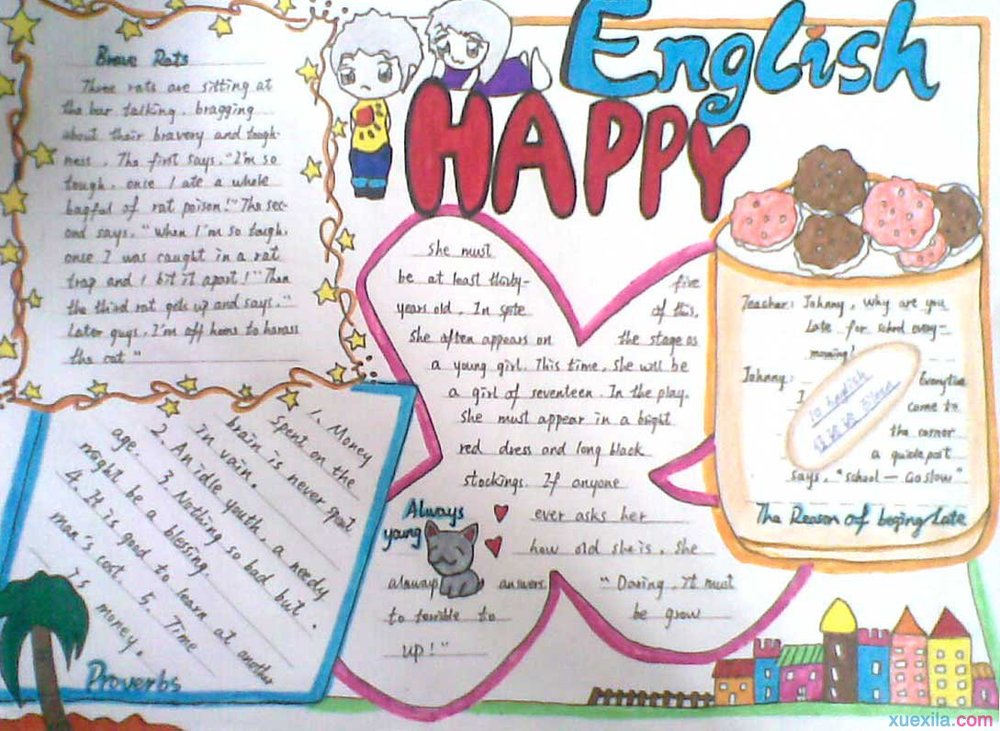 English
HAPPY
Brave Rats
Three rats are sitting at
the bar talking, bragging
about their bravery and tough-
ness. The first says, "I'm so
tough, once I ate a whole
bagful of rat poison!" The sec-
ond says, "When I'm so tough,
once I was caught in a rat
trap and I bit it apart!" Then
the third rat gets up and says, "
Later guys, I'm off home to harass
the cat"
1. Money
spent on the
brain is never spent
in vain.
2. An idle youth, a needy
age. 3. Nothing so bad but
might be a blessing.
4. It is good to learn at another
man's cost. 5. Time
is money.
Proverbs
she must
be at least thirty-
five
years old. In spite
of this,
she often appears on the stage as
a young girl. This time, she will be
a girl of seventeen. In the play,
she must appear in a bright
red dress and long black
stockings. If anyone
Always
young
ever asks her
how old she is, she
always answers
"Daring, it must
to terrible to
be grow
up!"
Teacher: Johnny, why are you
late for school every-
morning!
Johnny: Everytime
I come to
the corner
a guidepost
says, "school — Go slow"
The Reason of beging Late
xuexila.com